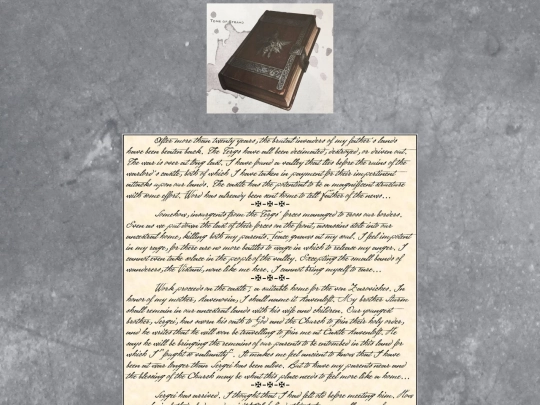 Tome of Strahd
After more than twenty years, the brutal invaders of my father's lands
have been beaten back. The Tergs have all been decimated, destroyed, or driven out.
The war is over at long last. I have found a valley that lies before the ruins of the
warlord's castle, both of which I have taken in payment for their impertinent
attacks upon our lands. The castle has the potential to be a magnificent structure
with some effort. Word has already been sent home to tell father of the news...
Somehow, insurgents from the Tergs' forces managed to cross our borders.
Even as we put down the last of their forces on the front, assassins stole into our
ancestral home, killing both my parents. gnaws at my soul. I feel impotent
in my rage, for there are no more battles to wage in which to release my anger. I
cannot even take solace in the people of the valley. Excepting the small bands of
wanderers, the Vistani, none like me here. I cannot bring myself to care...
Work proceeds on the castle, a suitable home for the von Zaroviches. In
honor of my mother, Ravenovia, I shall name it Ravenloft. My brother Sturm
shall remain in our ancestral lands with his wife and children. Our youngest
brother, Sergei, has sworn his oath to God and the Church to join their holy order,
and he writes that he will soon be travelling to join me at Castle Ravenloft. He
says he will be bringing the remains of our parents to be entombed in this land for
which I "fought so valiantly". It makes me feel ancient to know that I have
been at war longer than Sergei has been alive. But to have my parents near and
the blessing of the Church may be what this place needs to feel more like a home...
Sergei has arrived. I thought that I had felt old before meeting him. Now